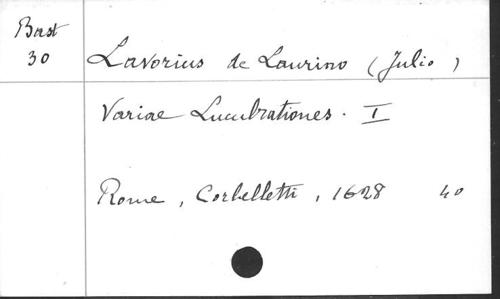 Bast
30
Lavorius de Laurino (Julio)
Variae Lucubrationes. I
Rome, Corbelletti, 1628 4o